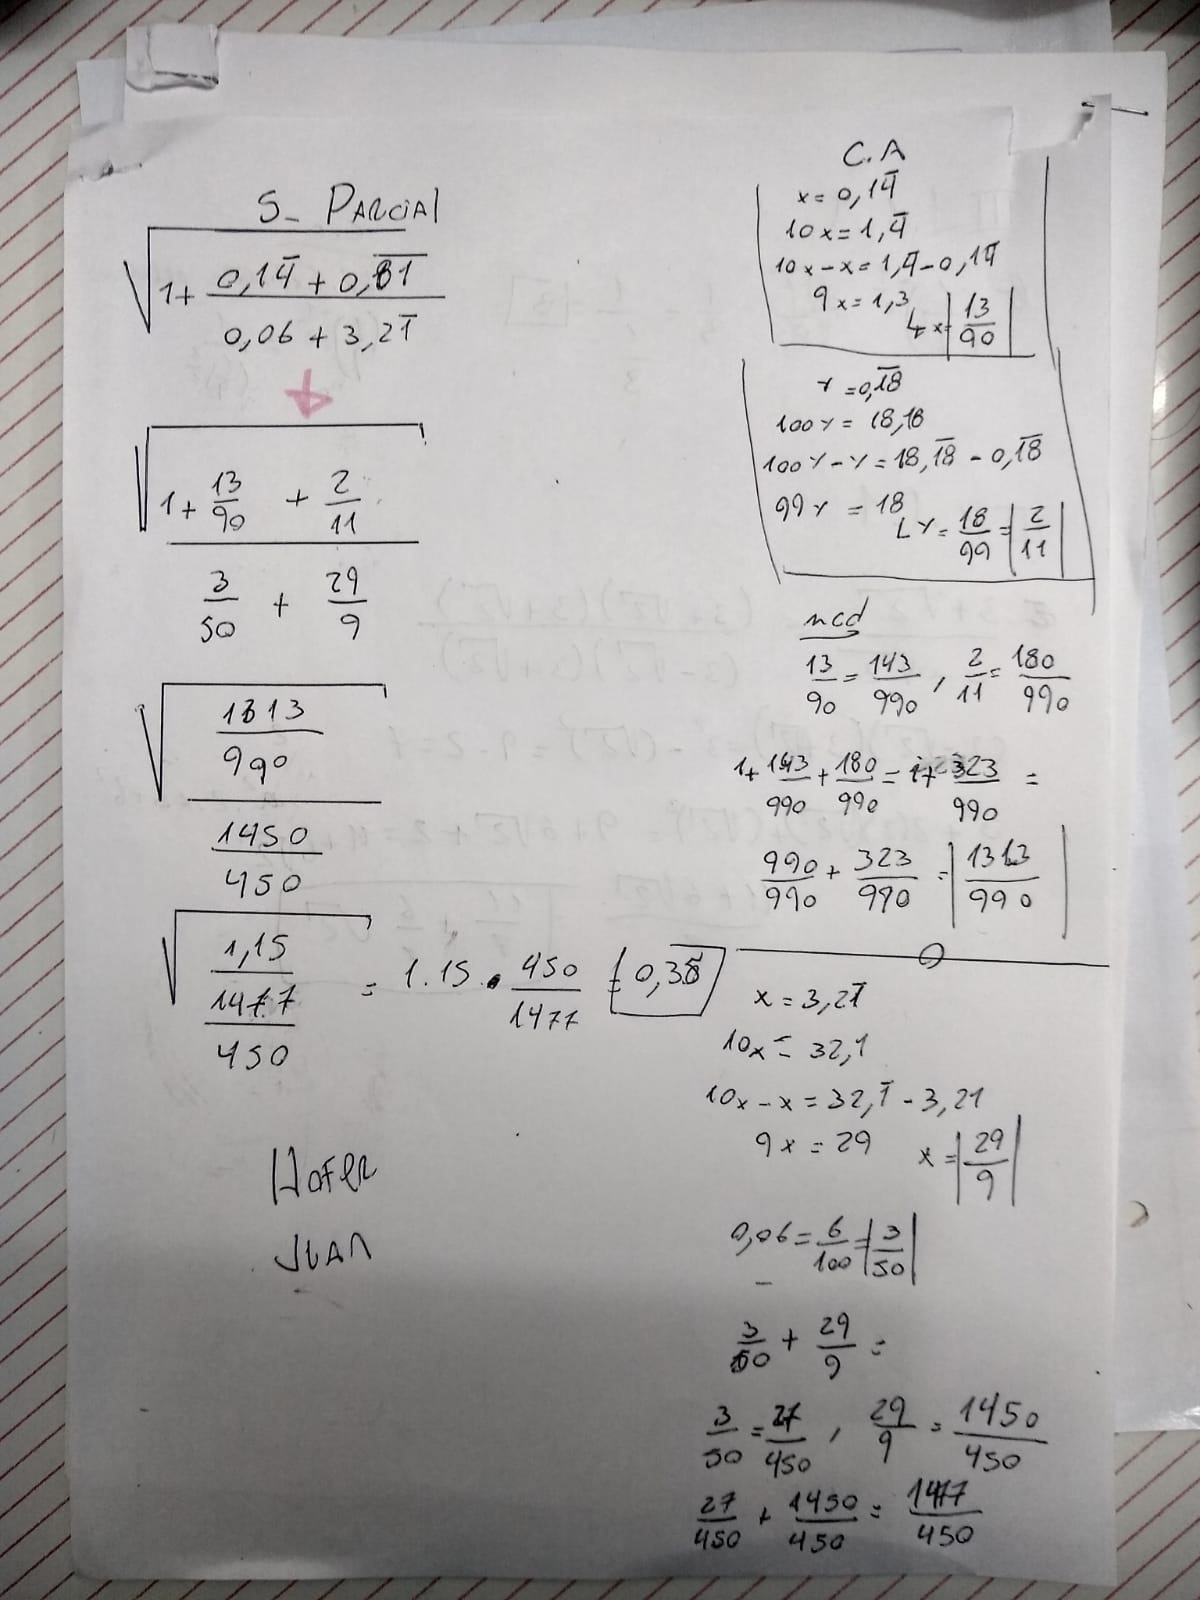 5- PARCIAL
√ 1+ (0,14̅ + 0,8̅1̅) / (0,06 + 3,21̅)
√ (1+ 13/90 + 2/11) / (3/50 + 29/9)
√ (1313/990) / (1450/450)
√ (1,15) / (1477/450) = 1.15 . 450/1477 = 0,35
HOFER
JUAN
C.A
x= 0,14̅
10x=1,4̅
10x-x=1,4̅-0,14̅
9x=1,3
x= |13/90|
Y =0,1̅8̅
100Y= 18,18
100Y-Y=18,1̅8̅ - 0,1̅8̅
99Y = 18
Y= 18/99 = |2/11|
mcd
13/90 = 143/990 , 2/11 = 180/990
1+ 143/990 + 180/990 = 1+ 323/990 =
990/990 + 323/990 = |1313/990|
x = 3,21̅
10x = 32,1
10x-x = 32,1̅ - 3,21
9x = 29 x = |29/9|
0,06 = 6/100 = |3/50|
3/50 + 29/9 =
3/50 = 27/450 , 29/9 = 1450/450
27/450 + 1450/450 = 1477/450